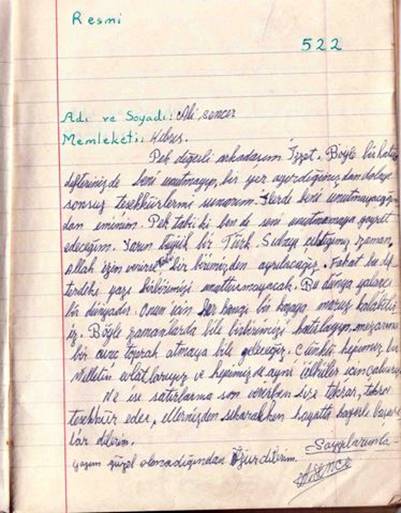 Resmi
522
Adı ve Soyadı: Ali, sencer
Memleketi: Kıbrıs.
Pek değerli arkadaşım İzzet. Böyle bir hatıra
defterinizde beni unutmayıp, bir yer ayırdığınızdan dolayı
sonsuz teşekkürlerimi sunarım. İlerde beni unutmayacağın
dan eminim. Pek tabi ki ben de seni unutmamaya gayret
edeceğim. Yarın büyük bir Türk olduğumuz zaman,
allah izin verirse bir birimizden ayrılacağız. Fakat bu def
terdeki yazı birbirimizi unutturmayacak. Bu dünya yalancı
bir dünyadır. Onun için her hangi bir kazaya maruz kalabilir
iz. Böyle zamanlarda bile birbirimizi hatırlayıp, mezarına
bir avuç toprak atmaya bile geleceğiz. Çünkü hepimiz bir
Milletin evlatlarıyız ve hepimizde aynı ülküler için çalışırız
Ne ise satırlarıma son verirken size tekrar, tekrar
teşekkür eder, ellerinizden sıkarakken hayatta başarılı
lar dilerim.
Saygılarımla
yazım güzel olmadığından Özür dilerim.